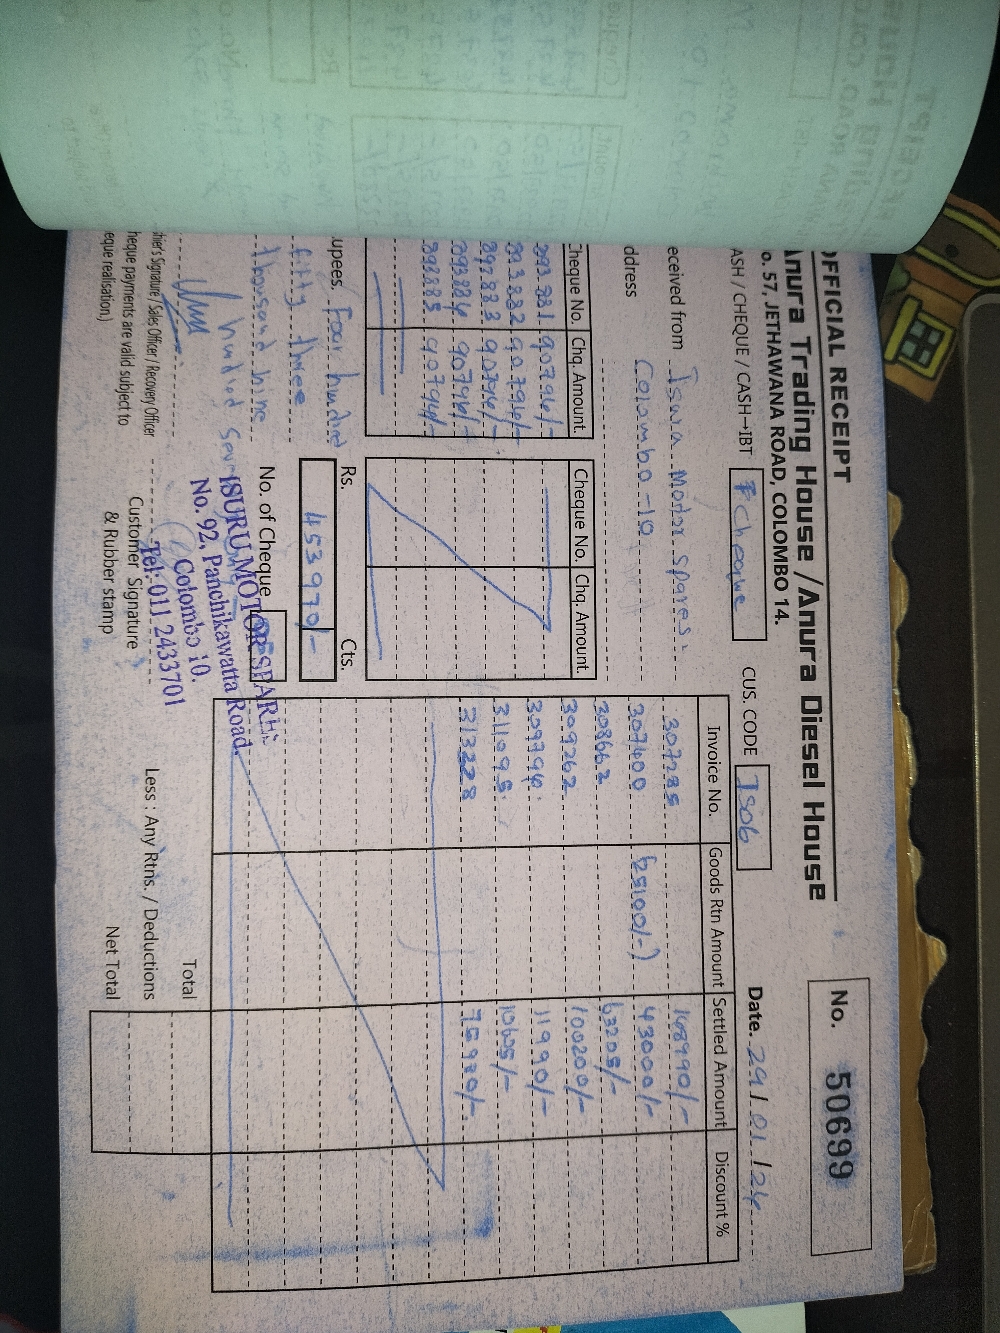 OFFICIAL RECEIPT
Anura Trading House /Anura Diesel House
o. 57, JETHAWANA ROAD, COLOMBO 14.
No. 50699
ASH / CHEQUE / CASH→IBT Cheque
CUS. CODE IS06
Date. 29/01/24
eceived from Isuru Motor Spares.
Colombo-10
ddress
Cheque No. Chq. Amount.
893831 90794/-
893832 90794/-
893833 90794/-
893834 90794/-
893835 90794/-
Cheque No. Chq. Amount.
Invoice No. Goods Rtn Amount Settled Amount Discount %
307285 148990/-
307400 (25100/-) 43000/-
308662 63205/-
309262 100200/-
309794 11990/-
311095 10625/-
313228 75980/-
upees. Four hundred
fifty three
thousand nine
hundred
Rs. Cts.
453970/-
No. of Cheque
ISURU MOTOR SPARES
No. 92, Panchikawatta Road.
Colombo 10.
Tel: 011 2433701
hier's Signature / Sales Officer / Recovery Officer
heque payments are valid subject to
eque realisation.)
Customer Signature
& Rubber stamp
Total
Less : Any Rtns. / Deductions
Net Total